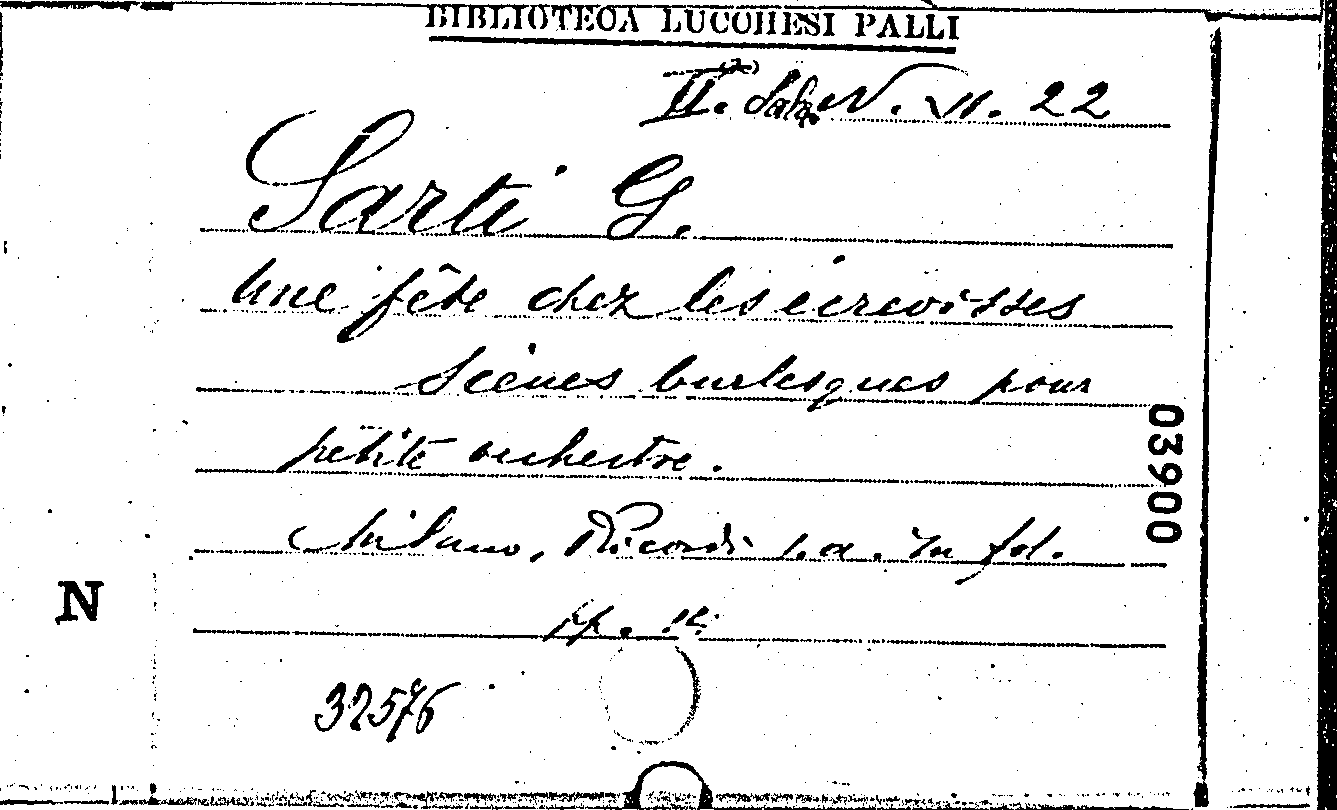 BIBLIOTECA LUCCHESI PALLI
II. Sala N. VI. 22
Sarti G.
Une fête chez les écrevisses
Scènes burlesques pour
petite orchestre.
Milano, Ricordi s. a. In fol.
pp.
03900
N
32576